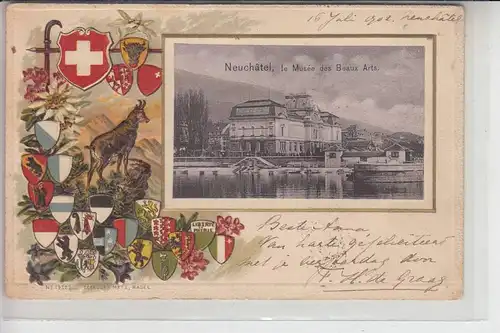 16 Juli 1902, Neuchâtel
Neuchâtel, le Musée des Beaux Arts.
LIBERTÉ
PATRIE
Beste Anna
Van harte gefeliciteerd
met je verjaardag van
F. H. de Graag
METZ, BASEL